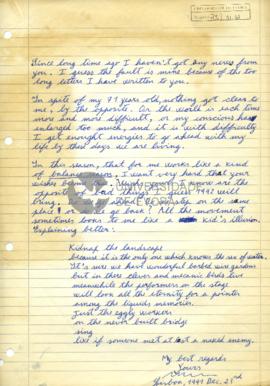 Since long time ago I haven't got any news from
you. I guess the fault is mine because of the too
long letters I have written to you.
In spite of my 71 years old, nothing got clear to
me, by the opposite. Or the world is each time
more and more difficult, or my conscious has
enlarged too much, and it is with difficulty
I get enought energies to go ahead with my
life by that days we are living.
In this season, that for me works like a kind
of balance season, I want very hard that your
wishes being
opposite of bad things I guess 1992 will
bring.
place or we go back? All the movement
sometimes looks to me like a kid's illusion.
Explaining better:
Kidnap the landscape
because it is the only one which knows the use of water.
It's sure we have wonderful barbed wire gardens
but in there clever and mecanic birds live
meanwhile the performers on the stage
will look all the eternity for a pointer
among the liquids memories.
Just the eggly workers
on the never built bridge
sing
like if someone met at last a naked enemy.
My best regards
Yours
Lisboa, 1991 Dec. 21st